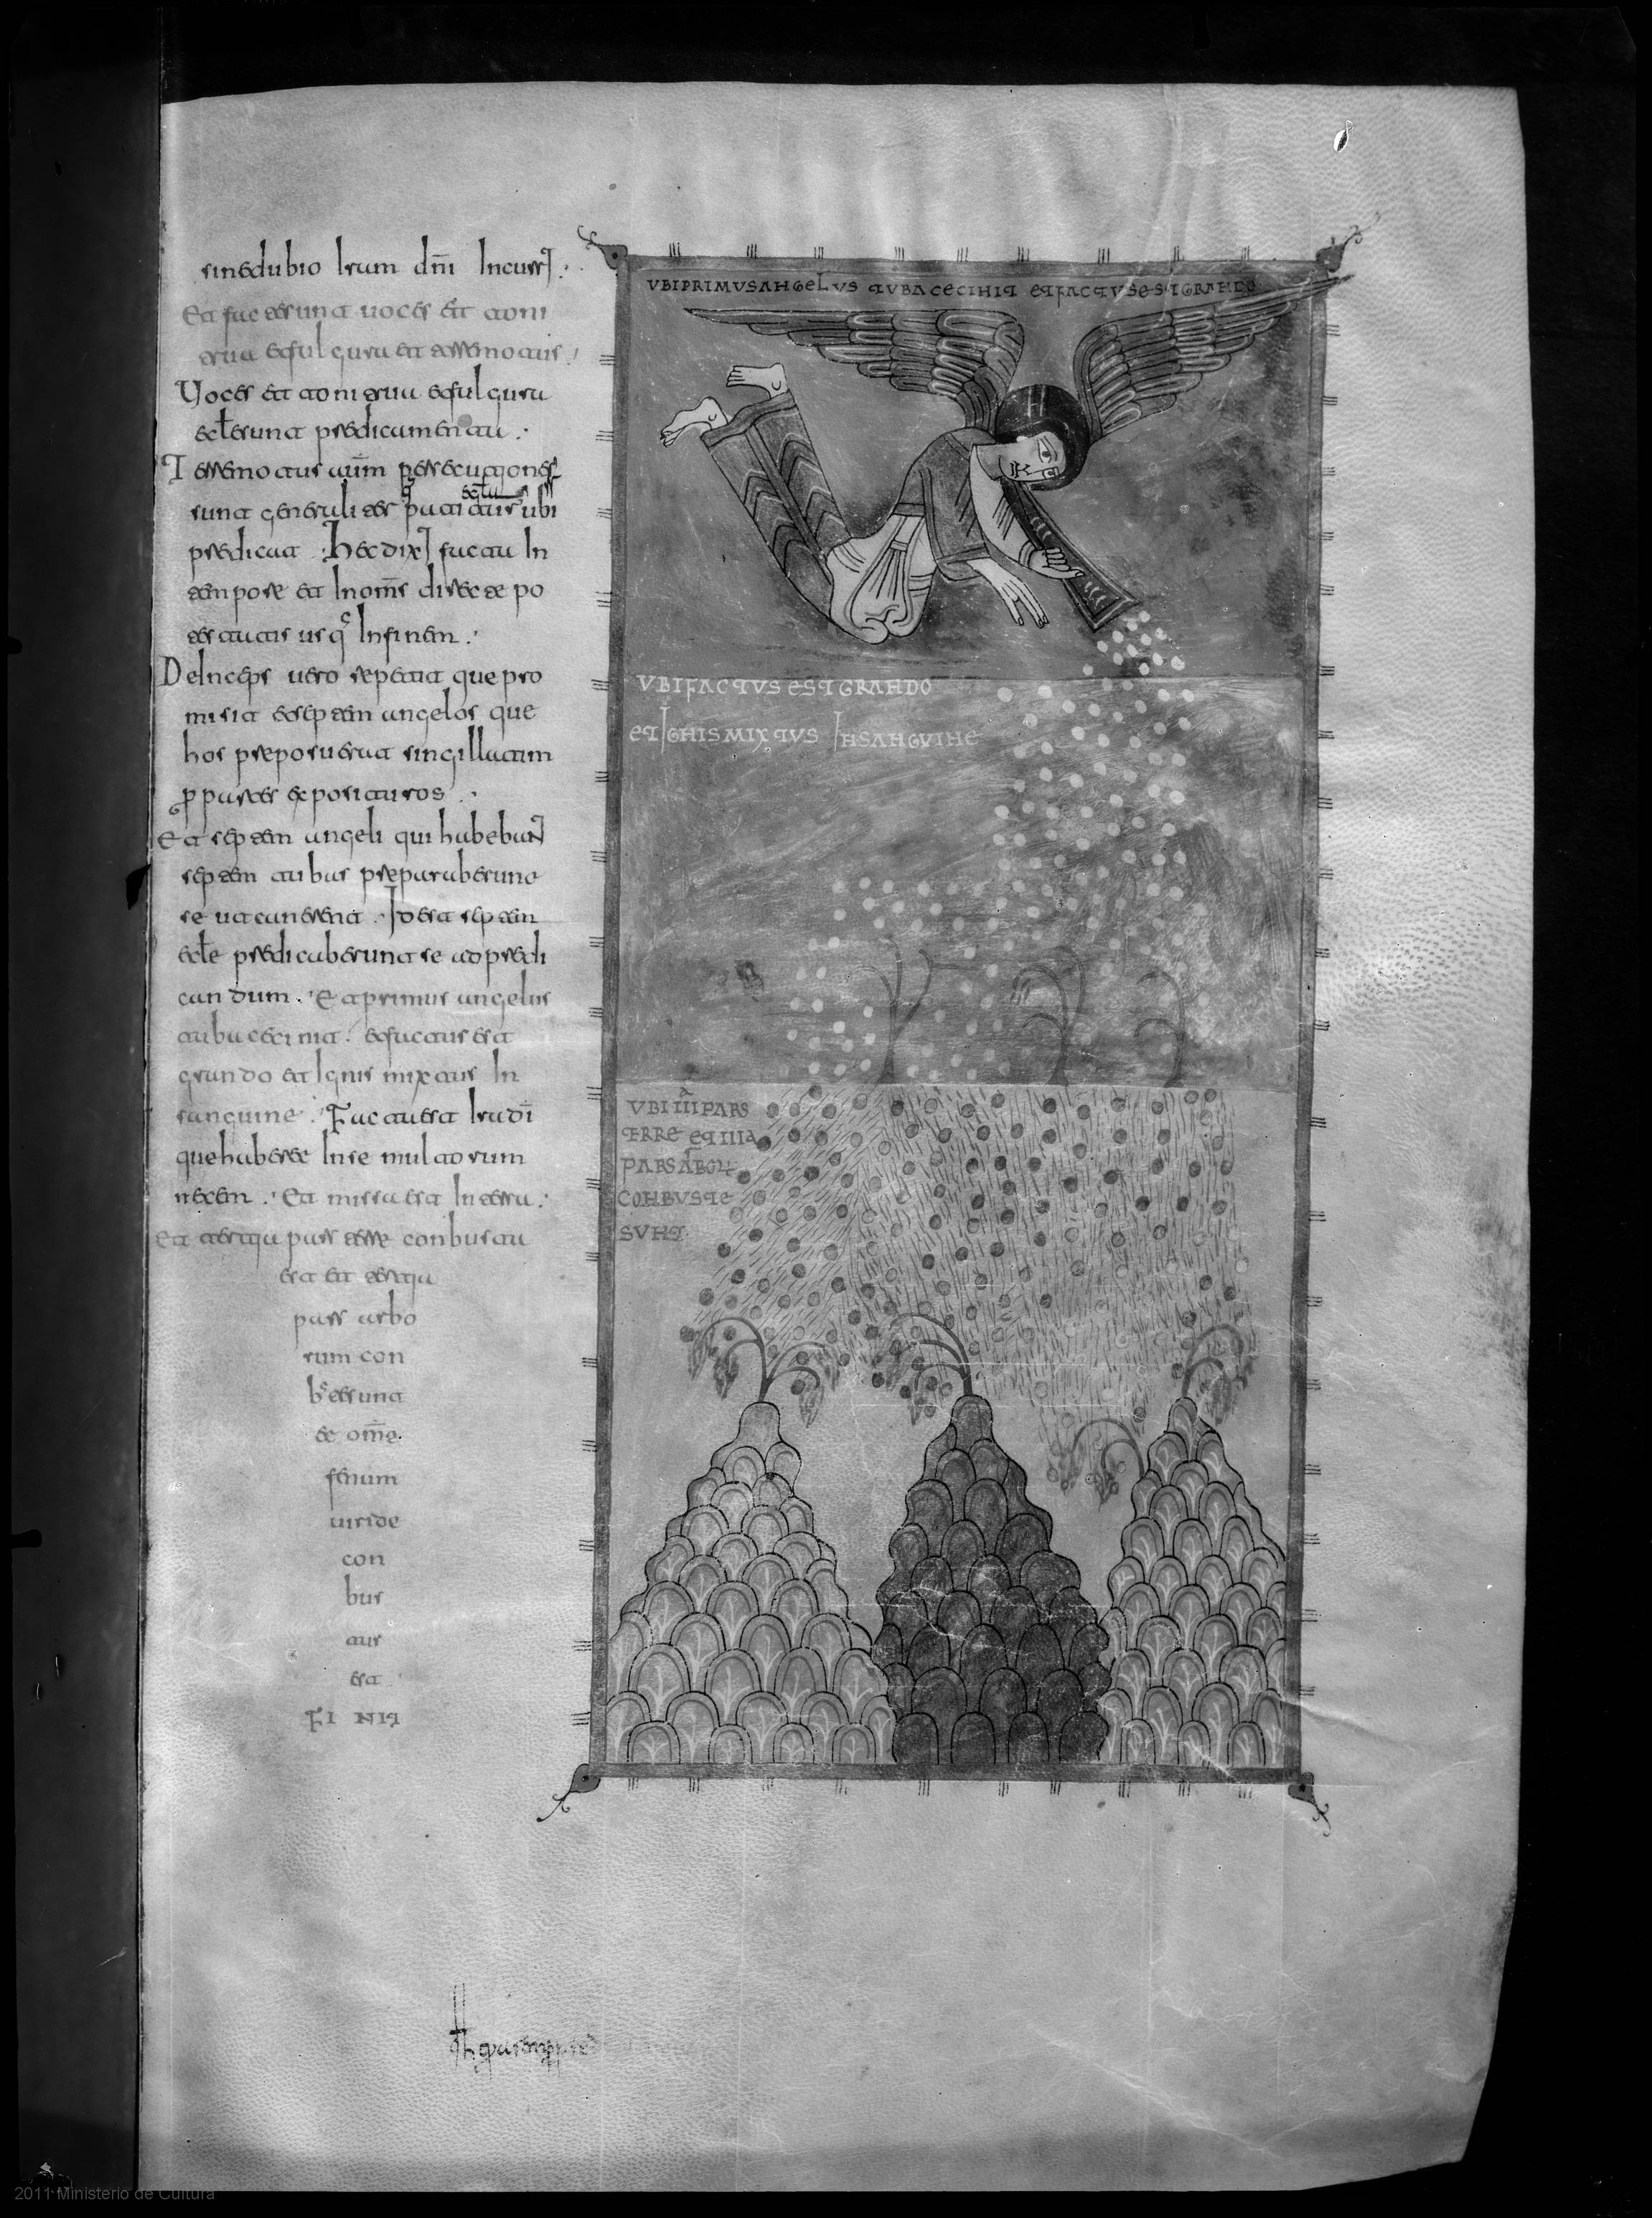 sine dubio Iram dni Incurrit
Et facte sunt uoces et toni
trua et fulgura et terremotus
Uoces et tonitrua et fulgura
eclesie sunt predicamenta
Terremotus autm persecutiones
sunt generales
ubi
predicat. hec dixit facta In
tempore et Inomīs dirècte po
testatis usq Infinem
DeInceps uero repetit que pro
misit et septem angelos que
hos preposuerat singillatim
p partes expositurus
Et septem angeli qui habebant
septem tubas preparaberunt
se ut canerent. Id est septem
ecle predicaberunt se ad predi
candum. Et primus angelus
tuba cecinit. et factus est
grando et Ignis mixtus In
sanguine. Facta est Ira di
que haberet In se multorum
necem. Et missa est In terra
Et tertia pars terre conbusta
est et tertia
pars arbo
rum con
buste sunt
et ome
fenum
uiride
con
bus
tus
est
FINIT
VBI PRIMUS ANGELVS TVBA CECINIT ET FACTVS EST GRANDO
VBI FACTVS EST GRANDO
ET IGNIS MIXTVS IN SANGVINE
VBI IIIA PARS
TERRE ET IIIA
PARS ARBOR
CONBVSTE
SVNT
2011 Ministerio de Cultura